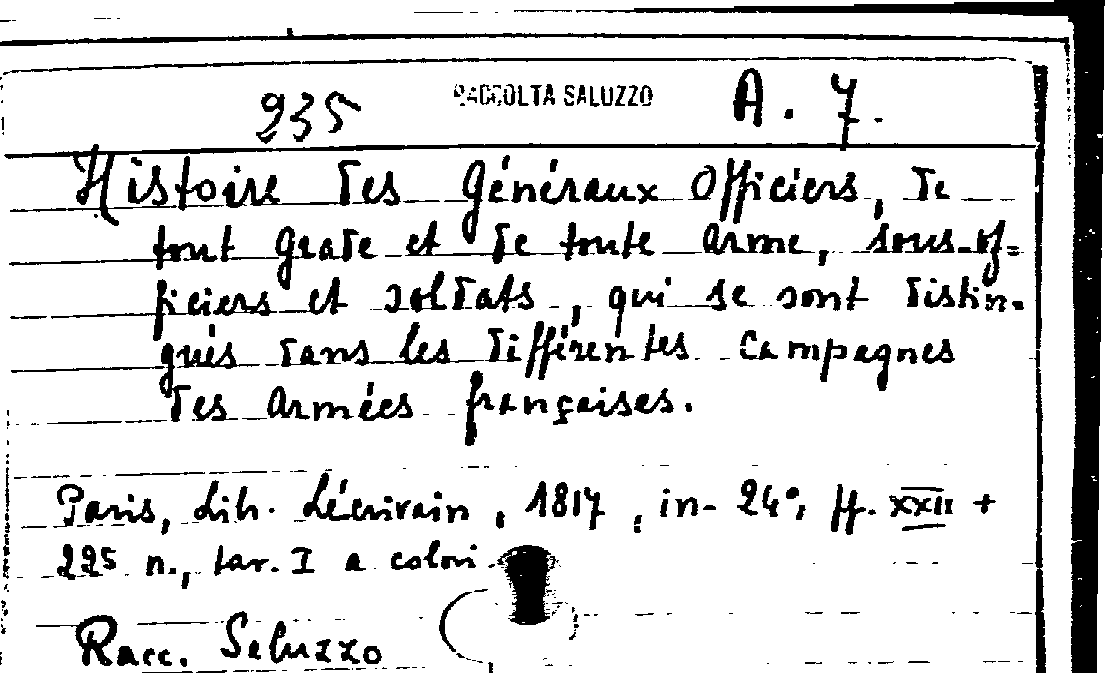 235 RACCOLTA SALUZZO A. 7.
Histoire des Généraux Officiers, de
tout grade et de toute arme, sous-of=
ficiers et soldats, qui se sont distin-
gués dans les différentes campagnes
des armées françaises.
Paris, Lib. Lécrivain, 1817, in-24°, ff. XXII +
225 n., tav. I a colori.
Racc. Saluzzo